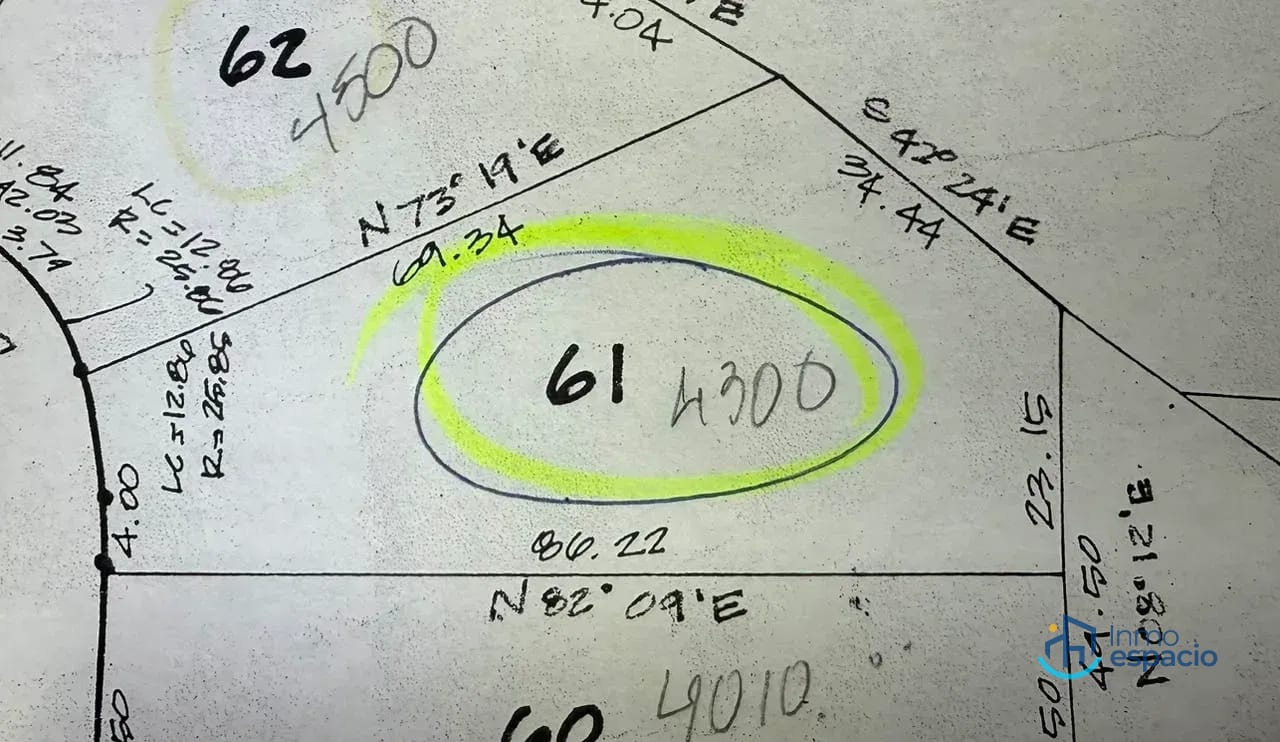 4.04
62
4500
N 73° 19'E
69.34
S 42° 24'E
34.44
LC=12.86
R=25.86
LC=12.86
R=25.86
4.00
61
4300
23.15
86.22
N 82° 09'E
44.50
N 08° 12'E
Inmo
espacio
60
4010
50
50